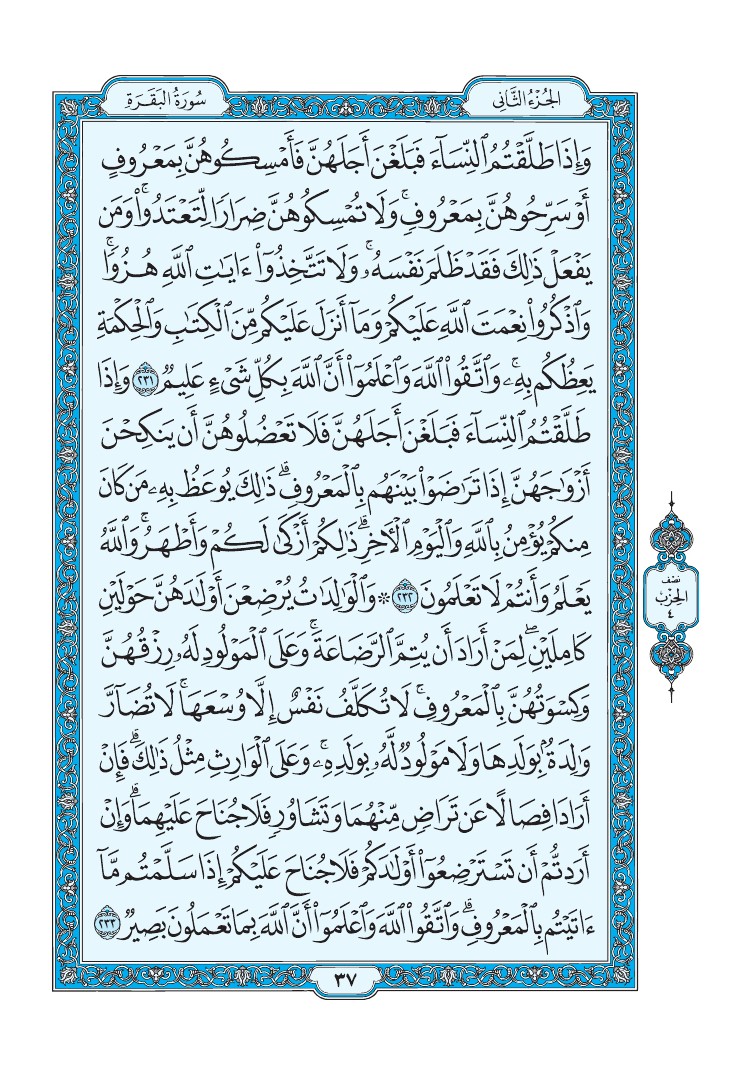 الجُزْءُ الثَّانِي
سُورَةُ البَقَرَةِ
وَإِذَا طَلَّقْتُمُ ٱلنِّسَآءَ فَبَلَغْنَ أَجَلَهُنَّ فَأَمْسِكُوهُنَّ بِمَعْرُوفٍ
أَوْ سَرِّحُوهُنَّ بِمَعْرُوفٍۚ وَلَا تُمْسِكُوهُنَّ ضِرَارًا لِّتَعْتَدُوا۟ۚ وَمَن
يَفْعَلْ ذَٰلِكَ فَقَدْ ظَلَمَ نَفْسَهُۥۚ وَلَا تَتَّخِذُوٓا۟ ءَايَٰتِ ٱللَّهِ هُزُوًاۚ
وَٱذْكُرُوا۟ نِعْمَتَ ٱللَّهِ عَلَيْكُمْ وَمَآ أَنزَلَ عَلَيْكُم مِّنَ ٱلْكِتَٰبِ وَٱلْحِكْمَةِ
يَعِظُكُم بِهِۦۚ وَٱتَّقُوا۟ ٱللَّهَ وَٱعْلَمُوٓا۟ أَنَّ ٱللَّهَ بِكُلِّ شَىْءٍ عَلِيمٌ ٢٣١ وَإِذَا
طَلَّقْتُمُ ٱلنِّسَآءَ فَبَلَغْنَ أَجَلَهُنَّ فَلَا تَعْضُلُوهُنَّ أَن يَنكِحْنَ
أَزْوَٰجَهُنَّ إِذَا تَرَٰضَوْا۟ بَيْنَهُم بِٱلْمَعْرُوفِۗ ذَٰلِكَ يُوعَظُ بِهِۦ مَن كَانَ
مِنكُمْ يُؤْمِنُ بِٱللَّهِ وَٱلْيَوْمِ ٱلْـَٔاخِرِۗ ذَٰلِكُمْ أَزْكَىٰ لَكُمْ وَأَطْهَرُۚ وَٱللَّهُ
يَعْلَمُ وَأَنتُمْ لَا تَعْلَمُونَ ٢٣٢ ۞ وَٱلْوَٰلِدَٰتُ يُرْضِعْنَ أَوْلَٰدَهُنَّ حَوْلَيْنِ
كَامِلَيْنِۖ لِمَنْ أَرَادَ أَن يُتِمَّ ٱلرَّضَاعَةَۚ وَعَلَى ٱلْمَوْلُودِ لَهُۥ رِزْقُهُنَّ
وَكِسْوَتُهُنَّ بِٱلْمَعْرُوفِۚ لَا تُكَلَّفُ نَفْسٌ إِلَّا وُسْعَهَاۚ لَا تُضَآرَّ
وَٰلِدَةٌۢ بِوَلَدِهَا وَلَا مَوْلُودٌ لَّهُۥ بِوَلَدِهِۦۚ وَعَلَى ٱلْوَارِثِ مِثْلُ ذَٰلِكَۗ فَإِنْ
أَرَادَا فِصَالًا عَن تَرَاضٍ مِّنْهُمَا وَتَشَاوُرٍ فَلَا جُنَاحَ عَلَيْهِمَاۗ وَإِنْ
أَرَدتُّمْ أَن تَسْتَرْضِعُوٓا۟ أَوْلَٰدَكُمْ فَلَا جُنَاحَ عَلَيْكُمْ إِذَا سَلَّمْتُم مَّآ
ءَاتَيْتُم بِٱلْمَعْرُوفِۗ وَٱتَّقُوا۟ ٱللَّهَ وَٱعْلَمُوٓا۟ أَنَّ ٱللَّهَ بِمَا تَعْمَلُونَ بَصِيرٌ ٢٣٣
نصف
الحزب
٤
٣٧